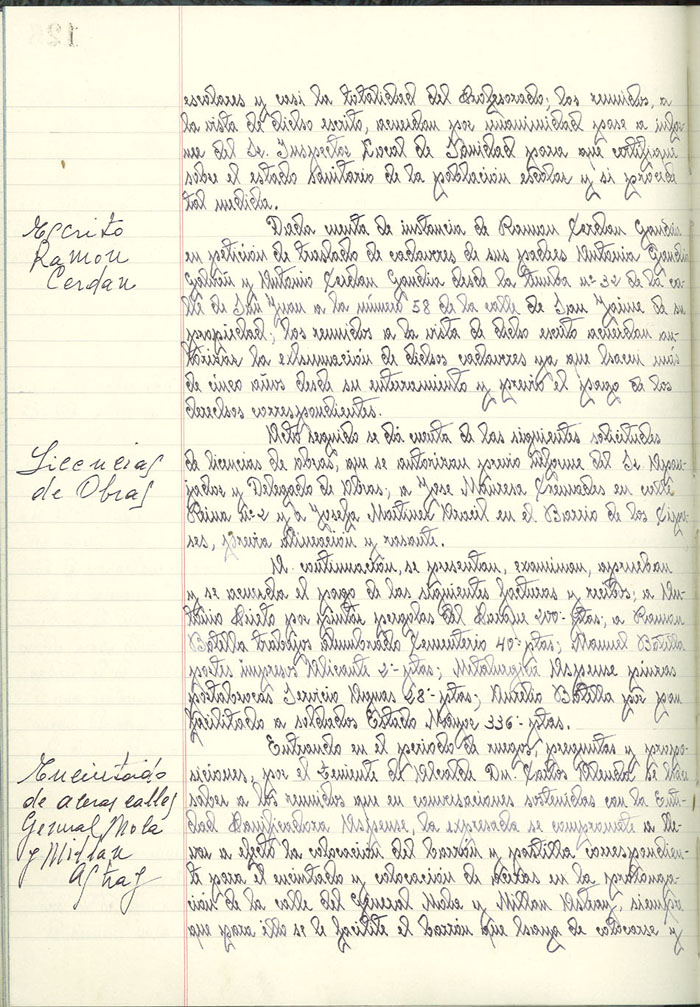 128
escolares y casi la totalidad del Profesorado; los reunidos, a
la vista de dicho escrito, acuerdan por unanimidad pase a infor-
me del Sr. Inspector Local de Sanidad para que certifique
sobre el estado sanitario de la población escolar y si procede
tal medida.
Escrito
Ramon
Cerdan
Dada cuenta de instancia de Ramon Cerdan Gandia
en petición de traslado de cadaveres de sus padres Antonia Gandia
Galvañ y Antonio Cerdan Gandia desde la tumba nº 32 de la ca-
lle de San Juan a la número 58 de la calle de San Jaime de su
propiedad; los reunidos a la vista de dicho escrito acuerdan au-
torizar la exhumación de dichos cadaveres ya que hacen más
de cinco años desde su enterramiento y previo el pago de los
derechos correspondientes.
Licencias
de Obras
Acto seguido se dá cuenta de las siguientes solicitudes
de licencias de obras, que se autorizan previo informe del Sr. Apare-
jador y Delegado de Obras; a Jose Manresa Cremades en calle
Reina nº 2 y a Josefa Martinez Abacil en el Barrio de los
previa alineación y rasante.
A continuación, se presentan, examinan, aprueban
y se acuerda el pago de las siguientes facturas y recibos: a An-
tonio por pintar pergolas del Parque 200'- ptas; a Ramon
Botella trabajos alumbrado Cementerio 40'- ptas; Manuel Botella
portes impresos Alicante 2'- ptas; Metalurgica Aspense pinzas
portabrocas Servicio Aguas 28'- ptas; Aurelio Botella por pan
facilitado a soldados Estado Mayor 336'- ptas.
Encintado
de aceras calles
General Mola
y Millan
Astray
Entrando en el periodo de ruegos, preguntas y propo-
siciones, por el Teniente de Alcalde Dn. Carlos se hace
saber a los reunidos que en conversaciones sostenidas con la Enti-
dad Panificadora Aspense, la expresada se compromete a lle-
var a efecto la colocación del bordón y rastilla correspondien-
te para el encintado y colocación de aceras en la prolonga-
ción de la calle del General Mola y Millan Astray, siempre
que para ello se le facilite el bordón que haya de colocarse y